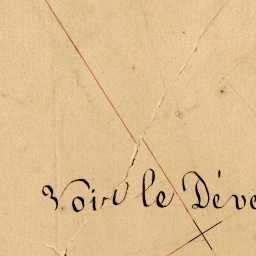 Voir le Déve